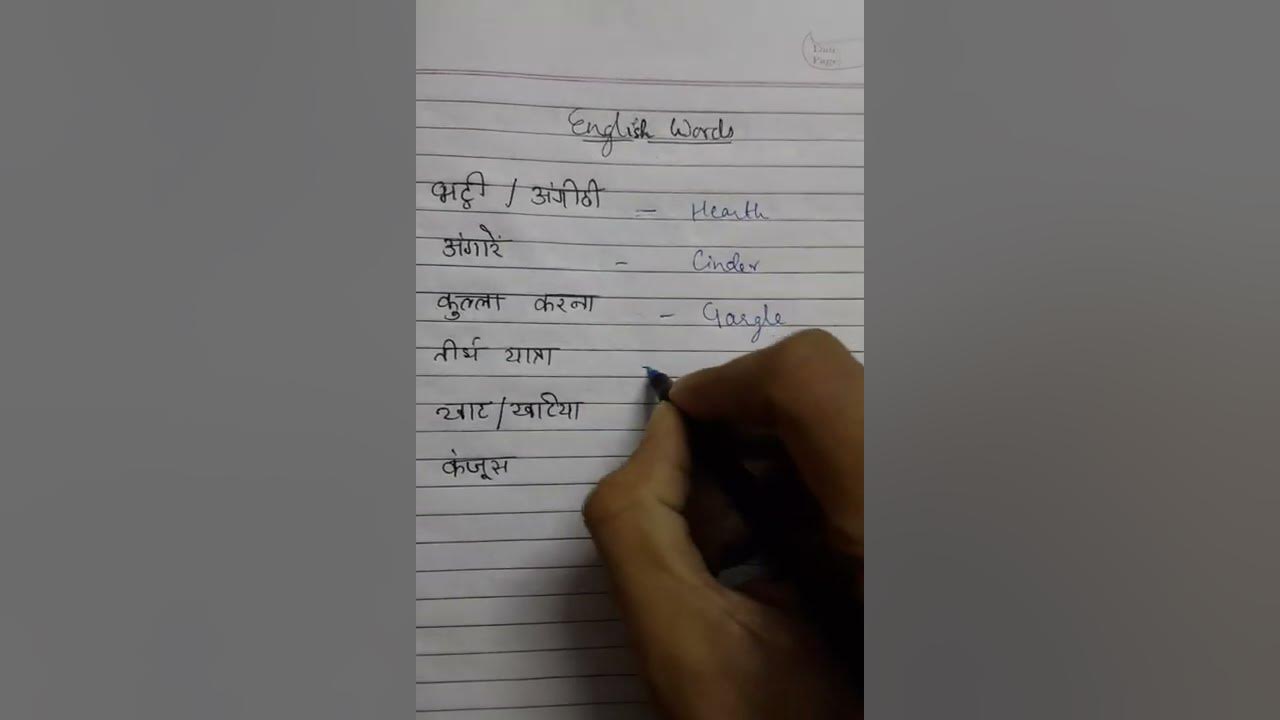 Date
Page
English Words
भट्ठी / अंगीठी - Hearth
अंगारें - Cinder
कुल्ला करना - Gargle
तीर्थ यात्रा
खाट / खटिया
कंजूस